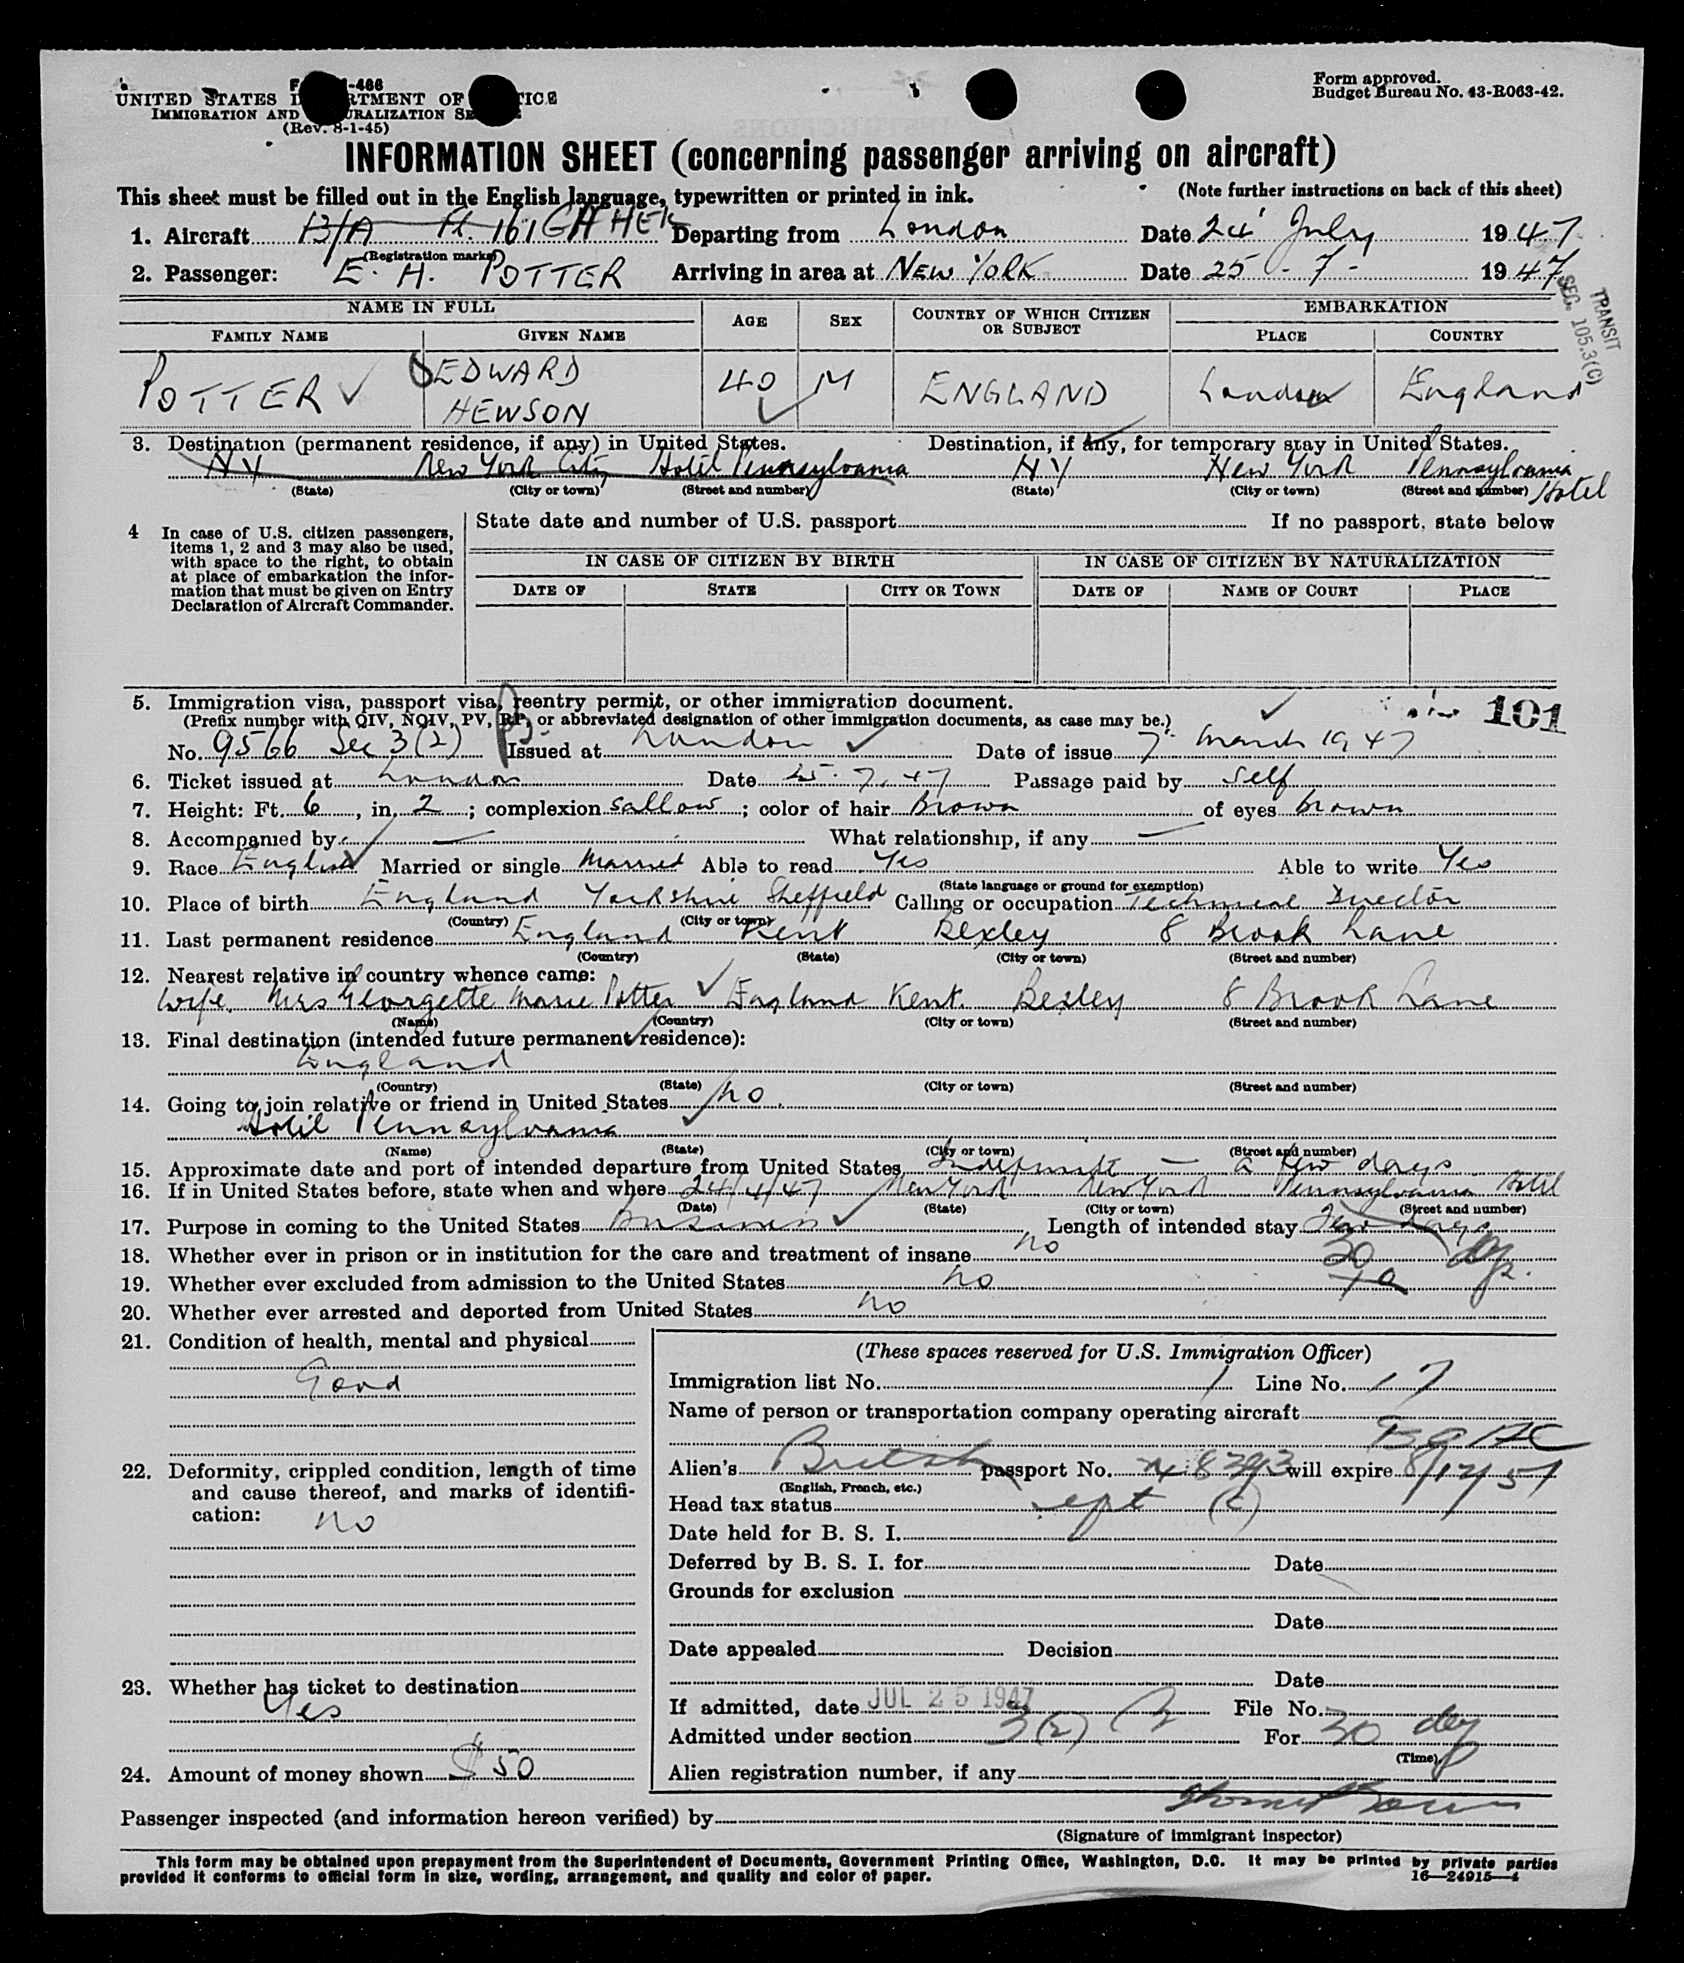 UNITED STATES DEPARTMENT OF JUSTICE
IMMIGRATION AND NATURALIZATION
(Rev. 8-1-45)
Form approved.
Budget Bureau No. 43-R063-42.
INFORMATION SHEET (concerning passenger arriving on aircraft)
This sheet must be filled out in the English language, typewritten or printed in ink.
(Note further instructions on back of this sheet)
1. Aircraft B/A Fl. 161 GAHEK Departing from London Date 24 July 1947
(Registration marks)
2. Passenger: E. H. POTTER Arriving in area at NEW YORK Date 25-7- 1947
TRANSIT
SEC. 105.3(C)
NAME IN FULL AGE SEX COUNTRY OF WHICH CITIZEN OR SUBJECT EMBARKATION
FAMILY NAME GIVEN NAME PLACE COUNTRY
POTTER EDWARD HEWSON 40 M ENGLAND London England
3. Destination (permanent residence, if any) in United States. Destination, if any, for temporary stay in United States.
NY New York City Hotel Pennsylvania NY New York Pennsylvania Hotel
(State) (City or town) (Street and number) (State) (City or town) (Street and number)
4 In case of U.S. citizen passengers, items 1, 2 and 3 may also be used, with space to the right, to obtain at place of embarkation the information that must be given on Entry Declaration of Aircraft Commander.
State date and number of U.S. passport If no passport, state below
IN CASE OF CITIZEN BY BIRTH IN CASE OF CITIZEN BY NATURALIZATION
DATE OF STATE CITY OR TOWN DATE OF NAME OF COURT PLACE
5. Immigration visa, passport visa, reentry permit, or other immigration document.
(Prefix number with QIV, NQIV, PV, RP, or abbreviated designation of other immigration documents, as case may be.)
101
No. 9566 Sec 3(2) Issued at London Date of issue 7 March 1947
6. Ticket issued at London Date 25.7.47 Passage paid by Self
7. Height: Ft. 6, in. 2; complexion sallow; color of hair Brown of eyes brown
8. Accompanied by — What relationship, if any —
9. Race English Married or single Married Able to read Yes Able to write Yes
(State language or ground for exemption)
10. Place of birth England Yorkshire Sheffield Calling or occupation Technical Director
(Country) (City or town)
11. Last permanent residence England Kent Bexley 8 Brook Lane
(Country) (State) (City or town) (Street and number)
12. Nearest relative in country whence came:
Wife. Mrs Georgette Marie Potter England Kent. Bexley 8 Brook Lane
(Name) (Country) (City or town) (Street and number)
13. Final destination (intended future permanent residence):
England
(Country) (State) (City or town) (Street and number)
14. Going to join relative or friend in United States No.
Hotel Pennsylvania
(Name) (State) (City or town) (Street and number)
15. Approximate date and port of intended departure from United States Indefinite — a few days
16. If in United States before, state when and where 24/4/47 New York New York Pennsylvania Hotel
(Date) (State) (City or town) (Street and number)
17. Purpose in coming to the United States Business Length of intended stay Few days
18. Whether ever in prison or in institution for the care and treatment of insane no 30
19. Whether ever excluded from admission to the United States no
20. Whether ever arrested and deported from United States no
21. Condition of health, mental and physical
Good
22. Deformity, crippled condition, length of time and cause thereof, and marks of identification: no
23. Whether has ticket to destination
Yes
24. Amount of money shown $50
(These spaces reserved for U.S. Immigration Officer)
Immigration list No. 1 Line No. 17
Name of person or transportation company operating aircraft
BOAC
Alien's British passport No. will expire 8/12/51
(English, French, etc.)
Head tax status
Date held for B. S. I.
Deferred by B. S. I. for Date
Grounds for exclusion
Date
Date appealed Decision
Date
If admitted, date JUL 25 1947 File No.
Admitted under section 3(2) For 30 dy
(Time)
Alien registration number, if any
Passenger inspected (and information hereon verified) by
(Signature of immigrant inspector)
This form may be obtained upon prepayment from the Superintendent of Documents, Government Printing Office, Washington, D.C. It may be printed by private parties
provided it conforms to official form in size, wording, arrangement, and quality and color of paper.
16—24915—4